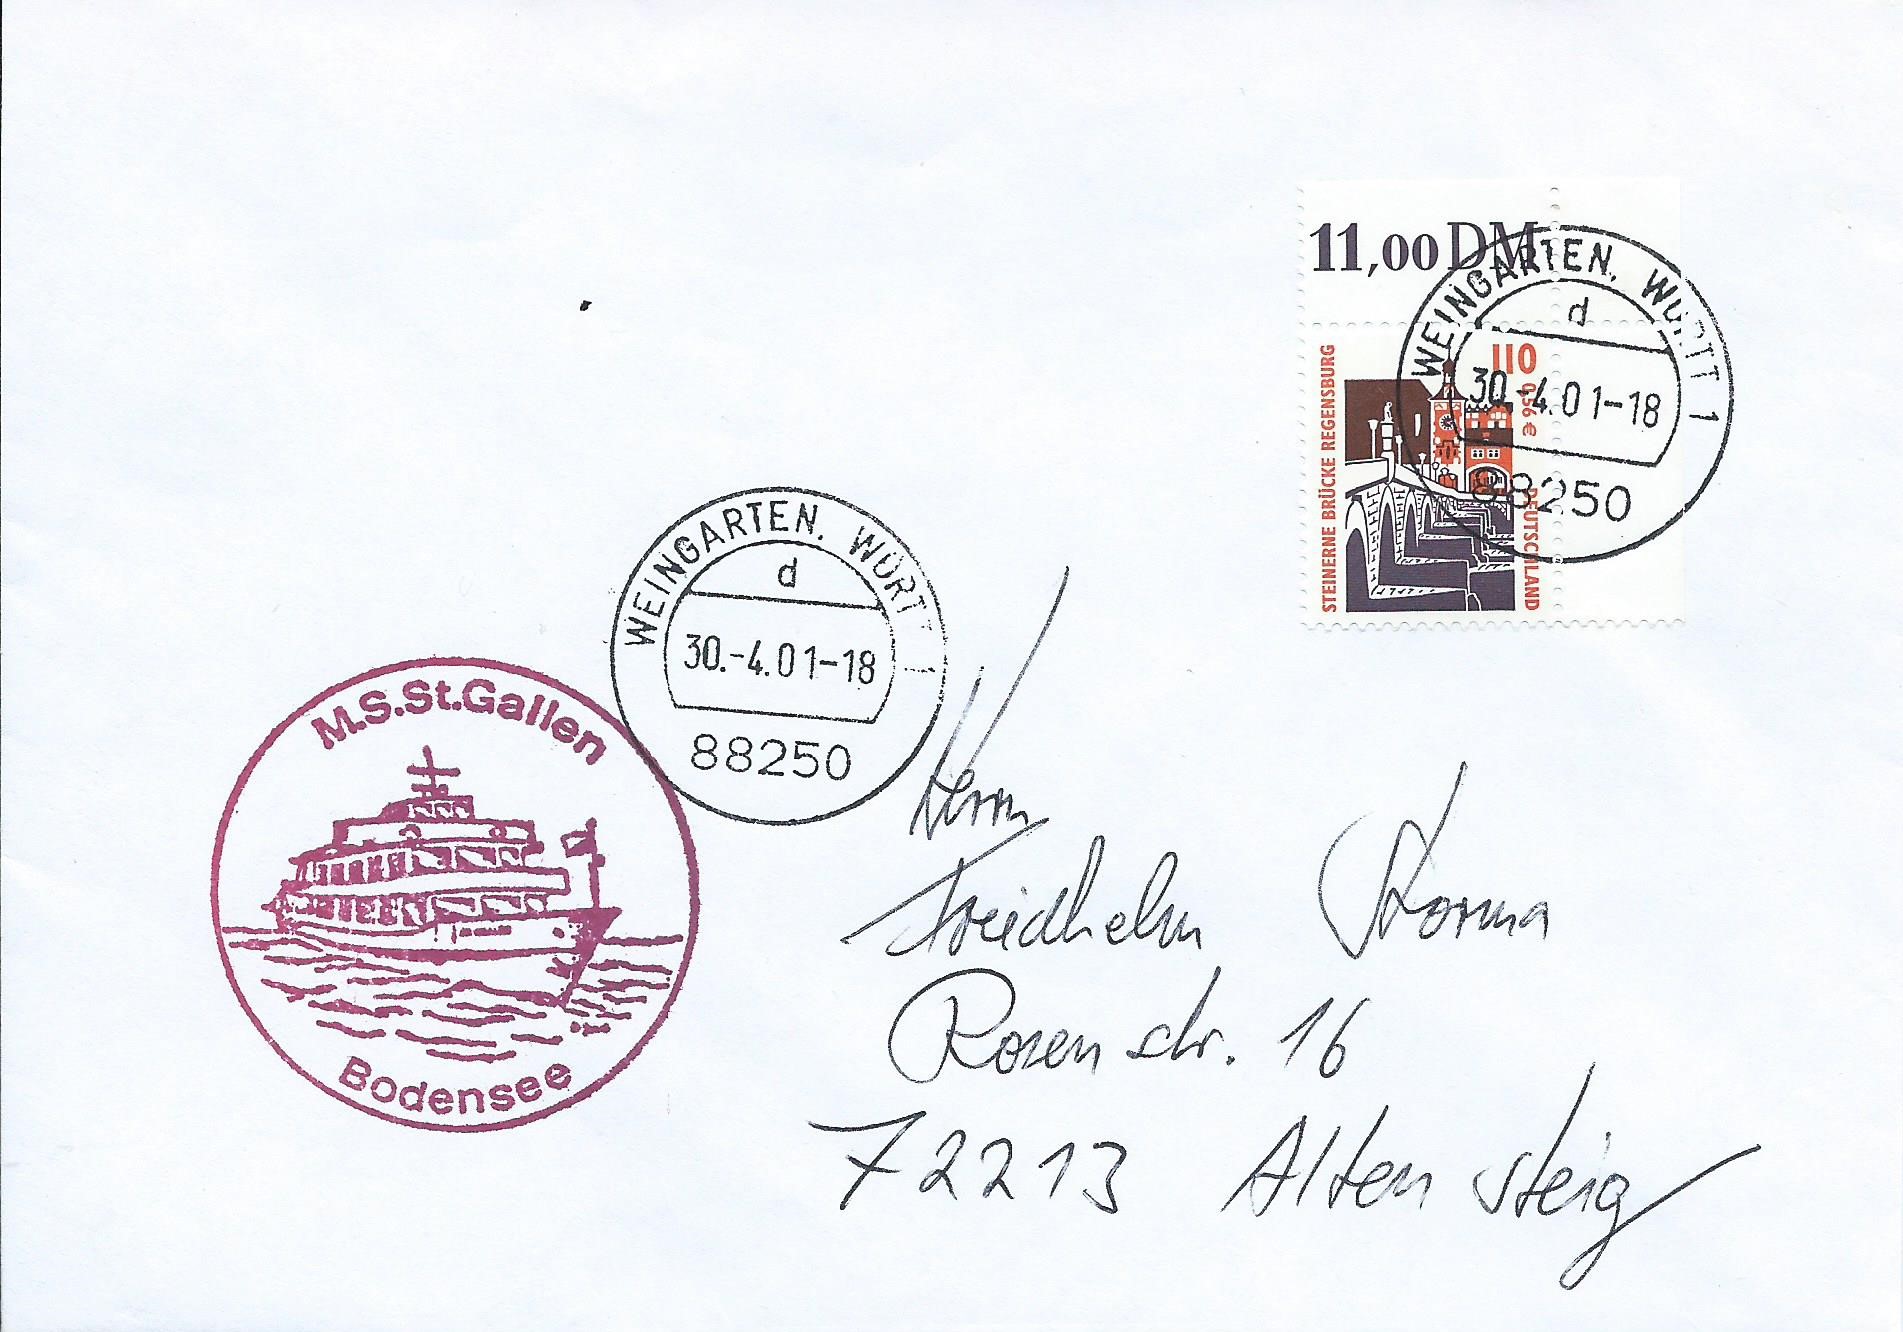 11,00 DM
WEINGARTEN, WÜRTT 1
d
30.-4.01-18
88250
110
0,56 €
STEINERNE BRÜCKE REGENSBURG
DEUTSCHLAND
WEINGARTEN, WÜRTT 1
d
30.-4.01-18
88250
M.S.St.Gallen
Bodensee
Herrn
Friedhelm Storma
Rosenstr. 16
72213 Altensteig